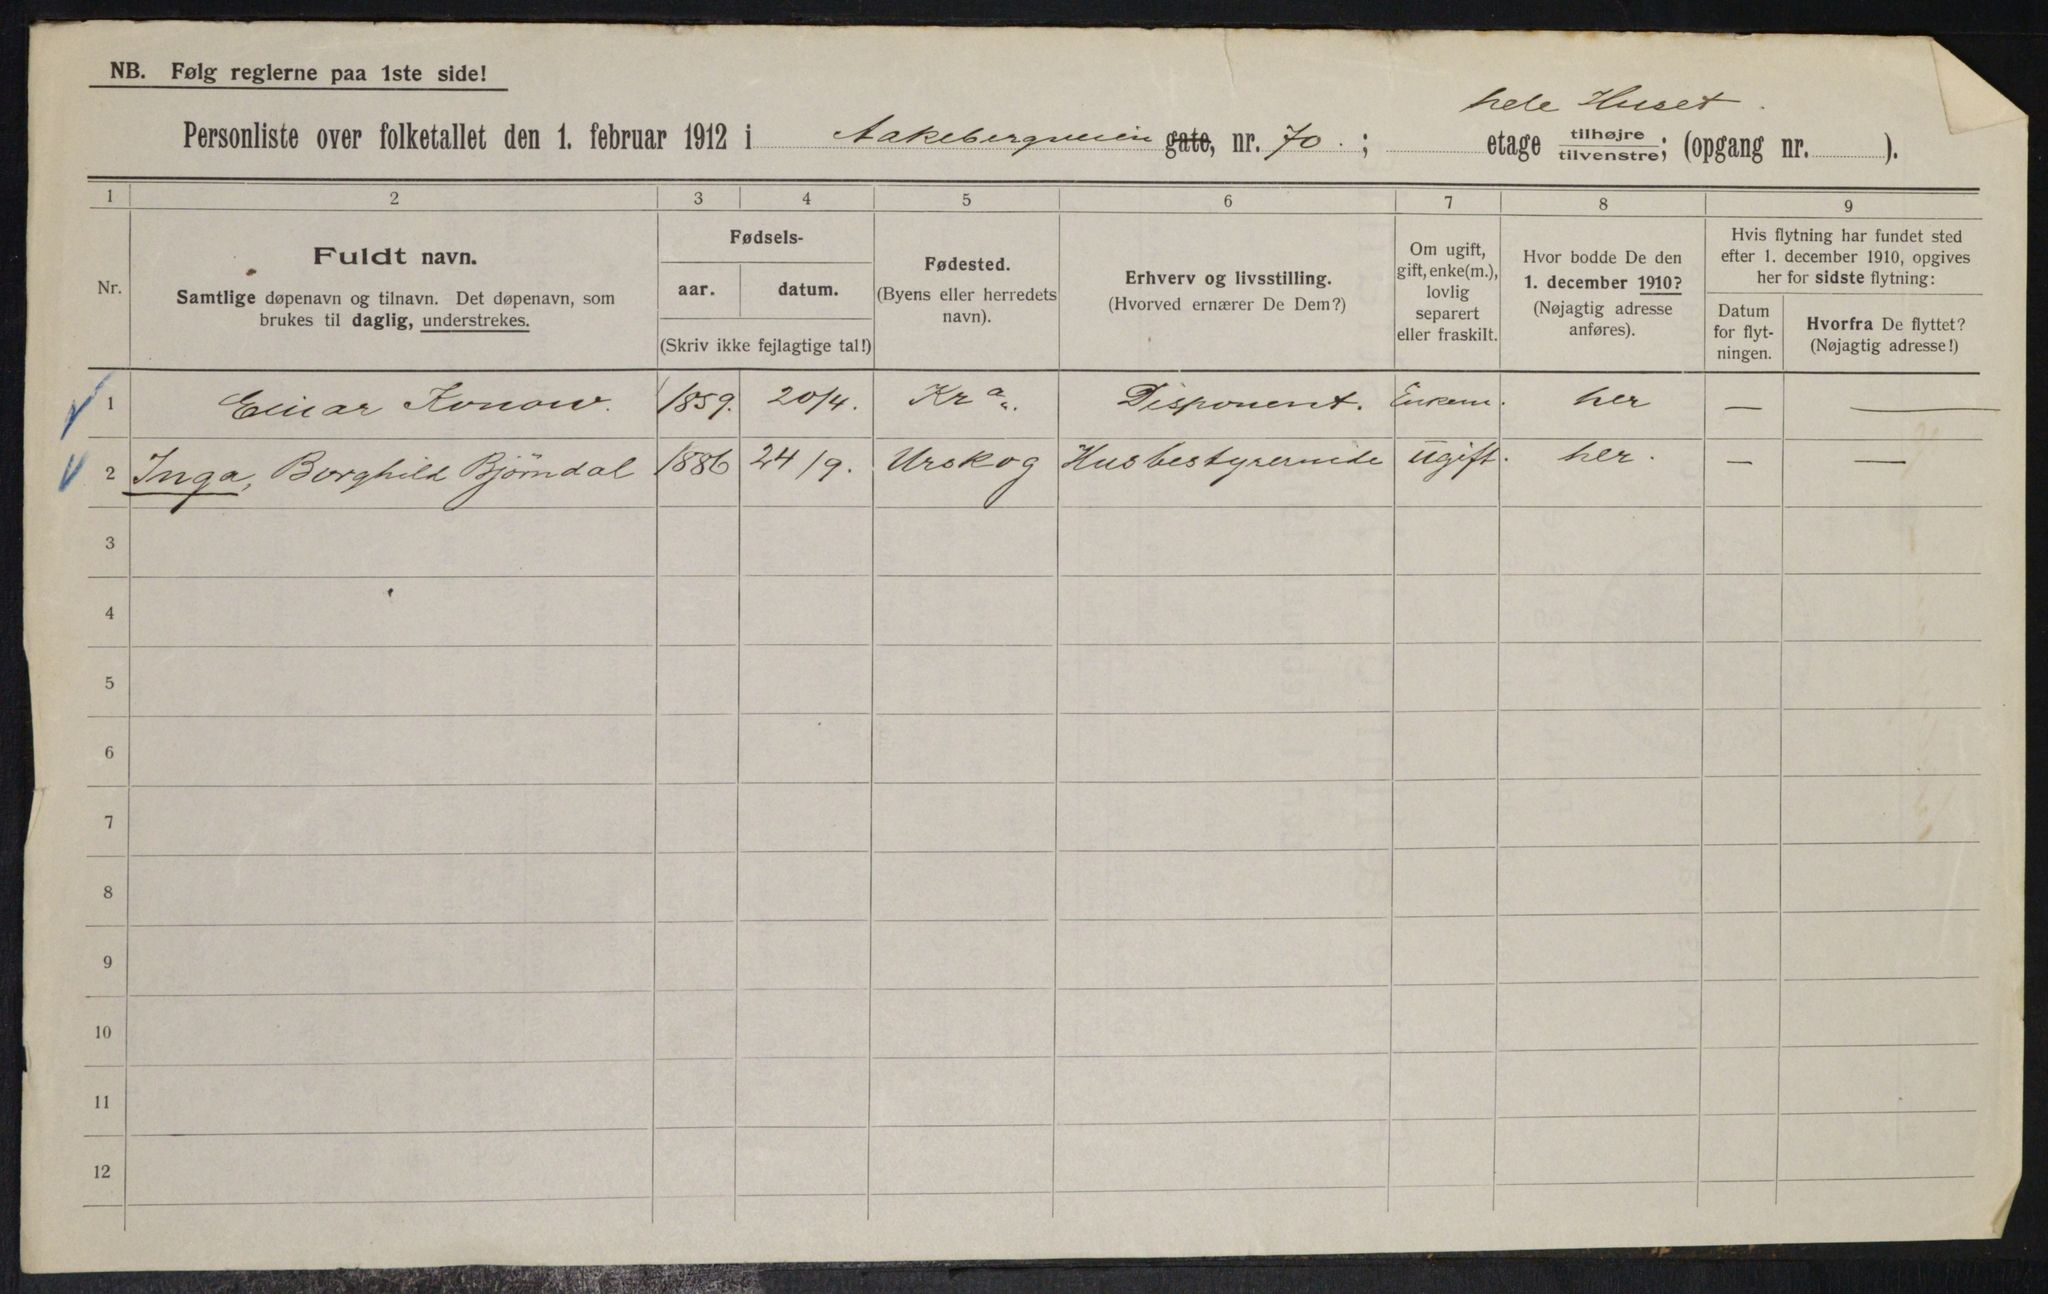 NB. Følg reglerne paa 1ste side!
hele Huset.
Personliste over folketallet den 1. februar 1912 i Aakebergveien gate, nr. 70.; etage tilhøjre/tilvenstre; (opgang nr. ).
1 2 3 4 5 6 7 8 9
Nr.
Fuldt navn.
Samtlige døpenavn og tilnavn. Det døpenavn, som
brukes til daglig, understrekes.
Fødsels-
aar. datum.
(Skriv ikke fejlagtige tal!)
Fødested.
(Byens eller herredets
navn).
Erhverv og livsstilling.
(Hvorved ernærer De Dem?)
Om ugift,
gift, enke(m.),
lovlig
separert
eller fraskilt.
Hvor bodde De den
1. december 1910?
(Nøjagtig adresse
anføres).
Hvis flytning har fundet sted
efter 1. december 1910, opgives
her for sidste flytning:
Datum
for flyt-
ningen.
Hvorfra De flyttet?
(Nøjagtig adresse!)
1 Einar Konow. 1859. 20/4. Kra„. Disponent. Enkem. her — —
2 Inga, Borghild Bjørndal 1886 24/9. Urskog Husbestyrerinde ugift. her. — —
3
4
5
6
7
8
9
10
11
12